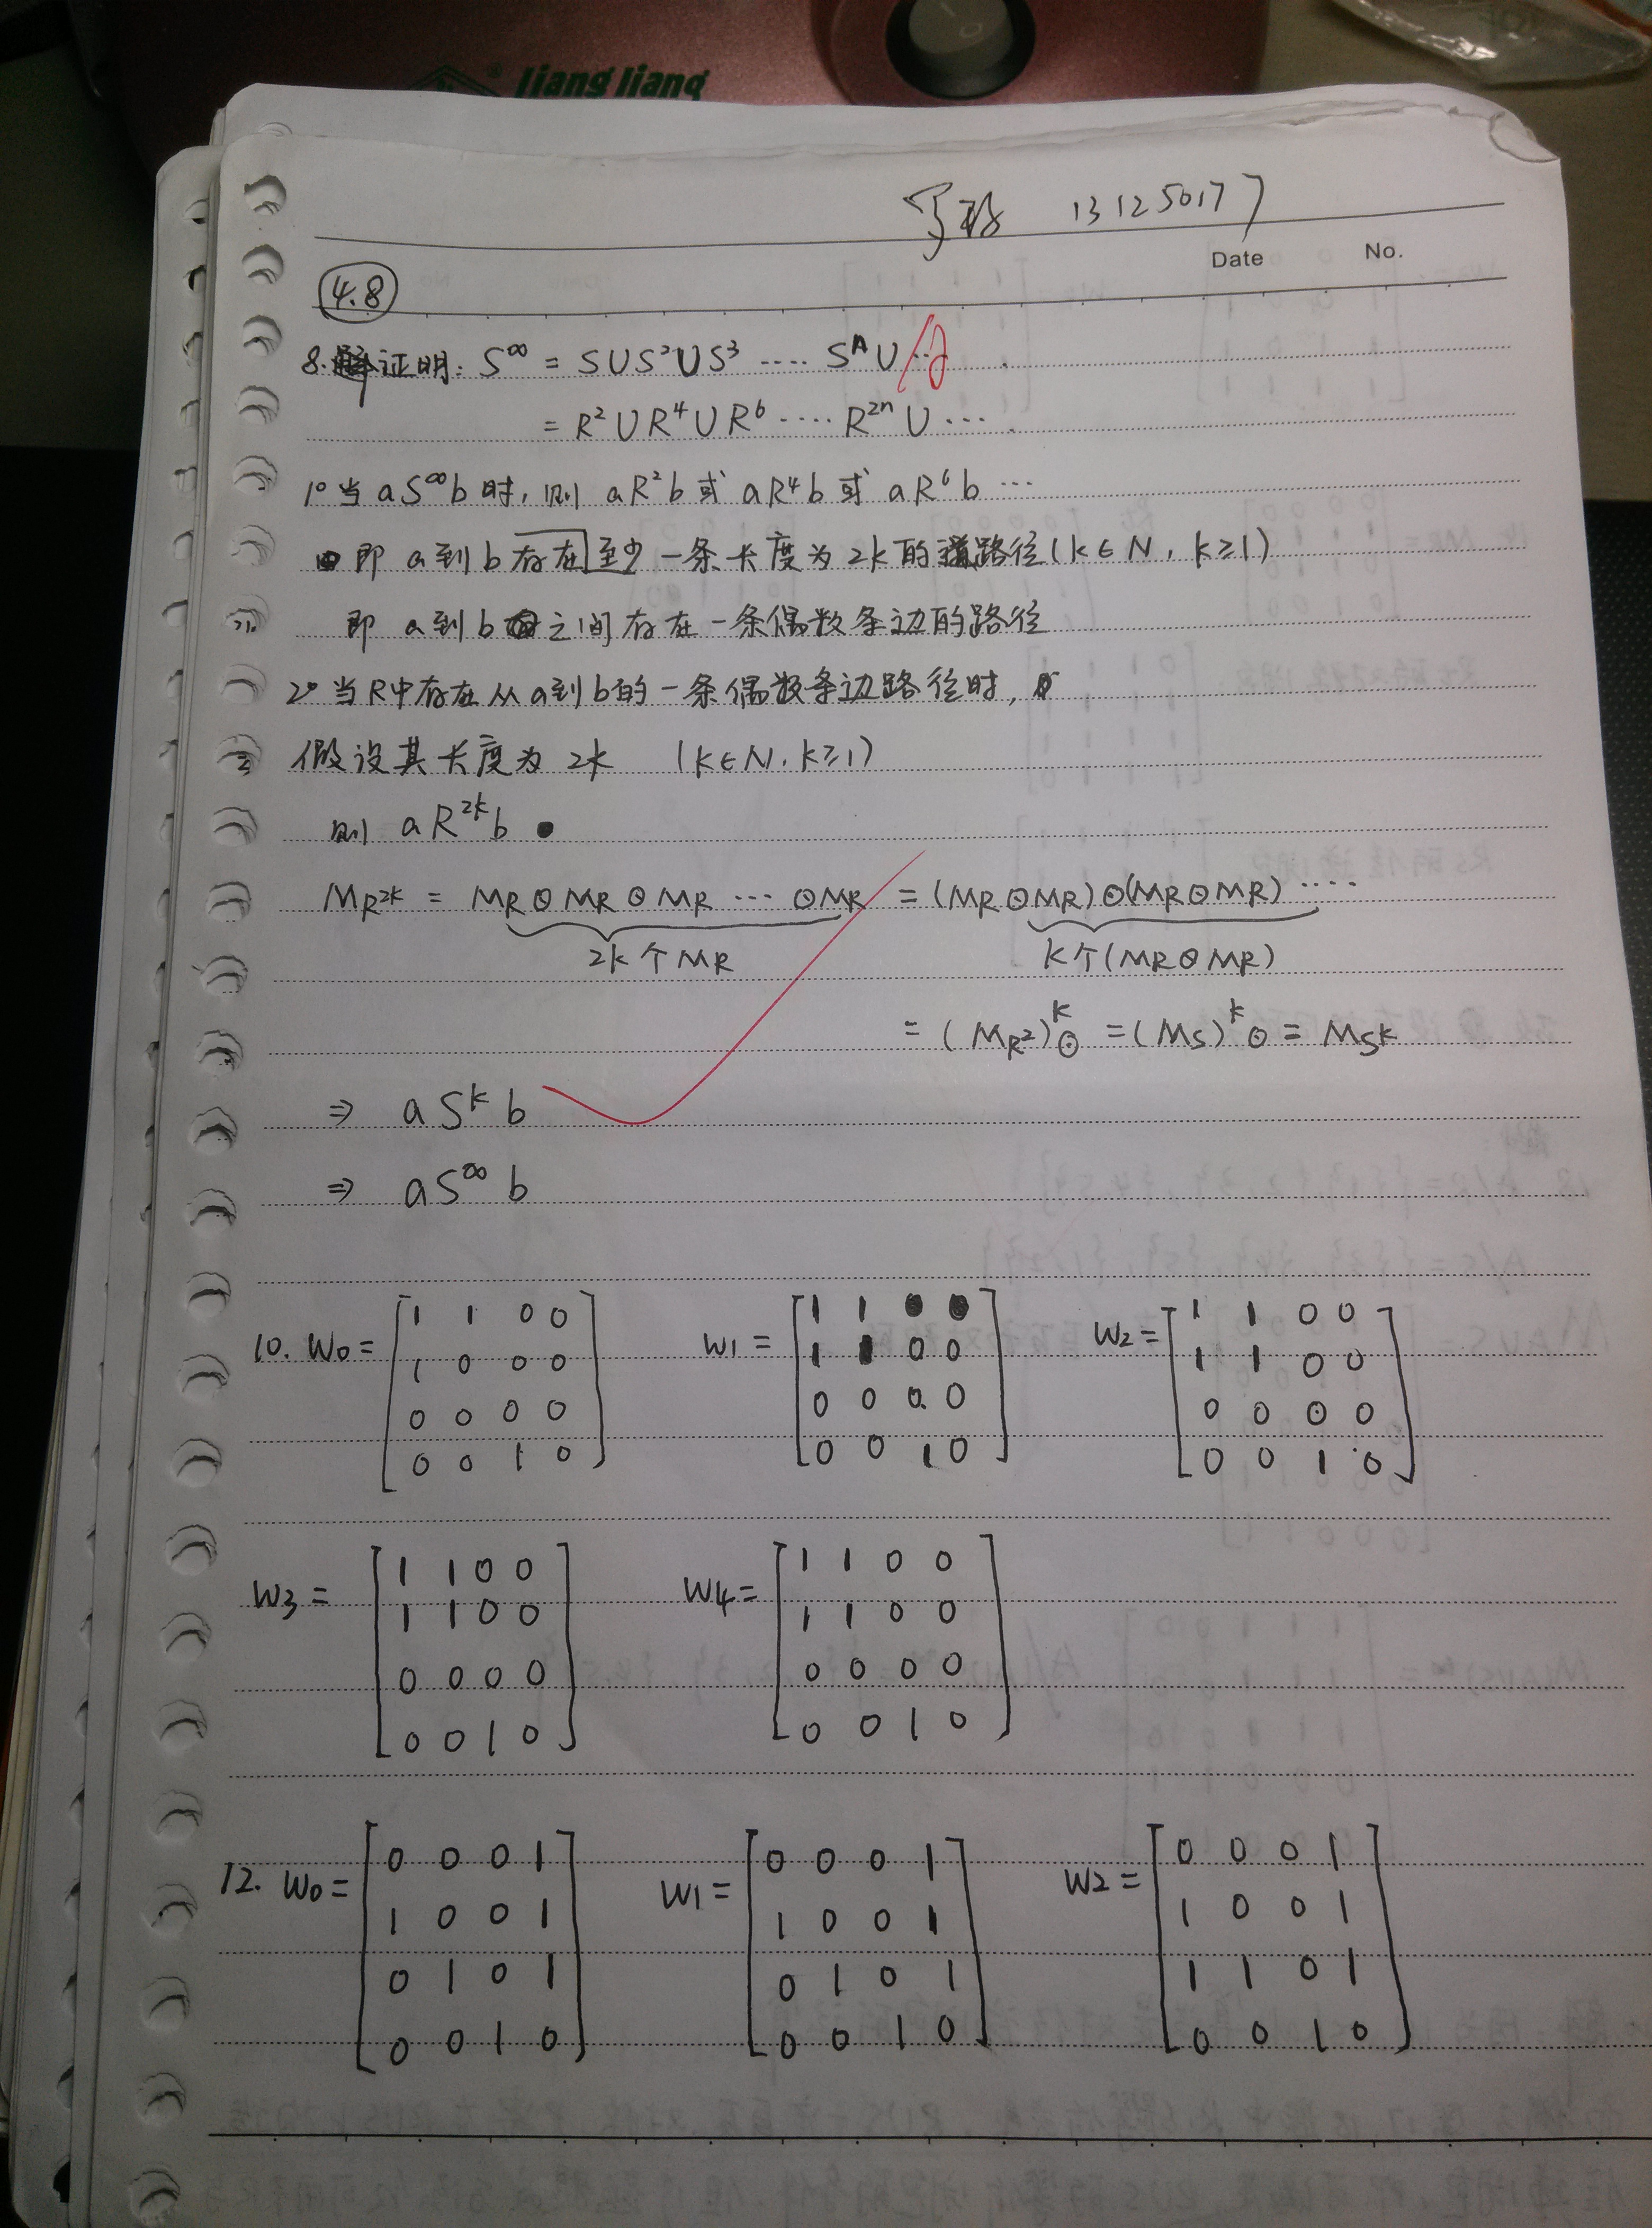 liang liang
13125017
Date No.
4.8
8. 证明: S^∞ = S∪S²∪S³ .... Sⁿ∪ ...
= R²∪R⁴∪R⁶ .... R²ⁿ∪ ...
1° 当 aS^∞b 时, 则 aR²b 或 aR⁴b 或 aR⁶b ...
即 a到b存在至少一条长度为2k的路径(k∈N, k≥1)
即 a到b之间存在一条偶数条边的路径
2° 当R中存在从a到b的一条偶数条边路径时,
假设其长度为 2k (k∈N, k≥1)
则 aR^{2k}b
M_{R^{2k}} = M_R⊙M_R⊙M_R ... ⊙M_R = (M_R⊙M_R)⊙(M_R⊙M_R) ....
2k个M_R k个(M_R⊙M_R)
= (M_{R²})^k_⊙ = (M_S)^k_⊙ = M_{S^k}
⇒ aS^k b
⇒ aS^∞ b
10. W0 = W1 = W2 =
1 1 0 0 1 1 1 1 0 0
1 0 0 0 1 1 0 0 1 1 0 0
0 0 0 0 0 0 0 0 0 0 0 0
0 0 1 0 0 0 1 0 0 0 1 0
W3 = W4 =
1 1 0 0 1 1 0 0
1 1 0 0 1 1 0 0
0 0 0 0 0 0 0 0
0 0 1 0 0 0 1 0
12. W0 = W1 = W2 =
0 0 0 1 0 0 0 1 0 0 0 1
1 0 0 1 1 0 0 1 1 0 0 1
0 1 0 1 0 1 0 1 1 1 0 1
0 0 1 0 0 0 1 0 0 0 1 0